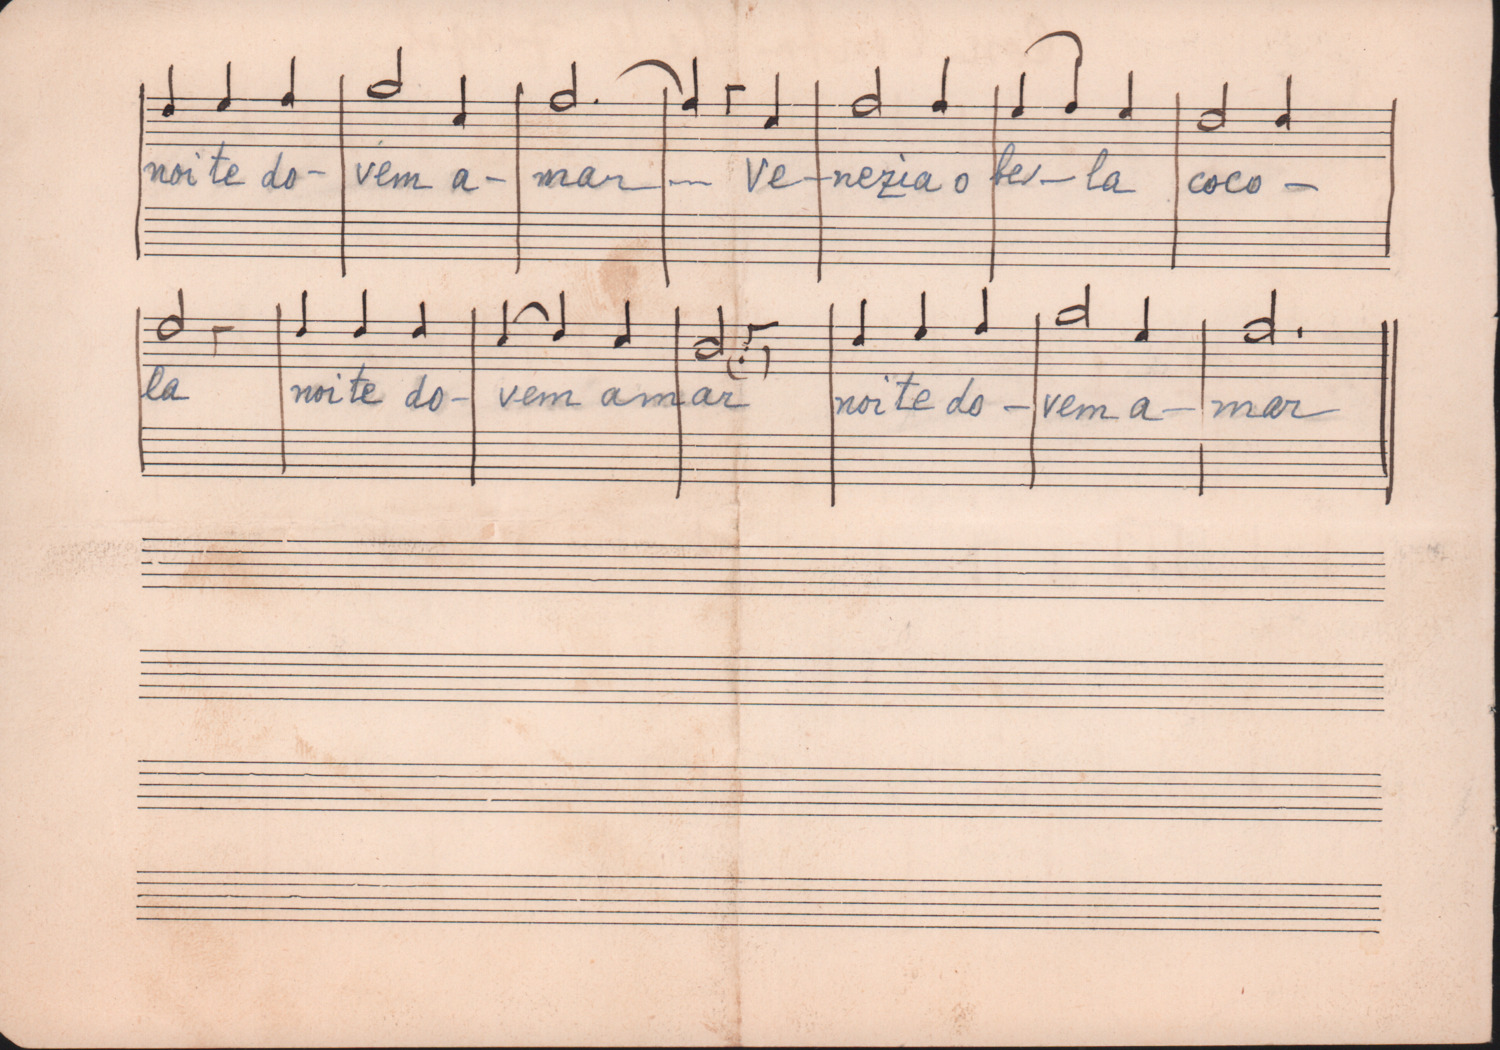 noi te do- vem a- mar - Ve-nezia o bel-la coco-
la noite do- vem amar noite do- vem a- mar